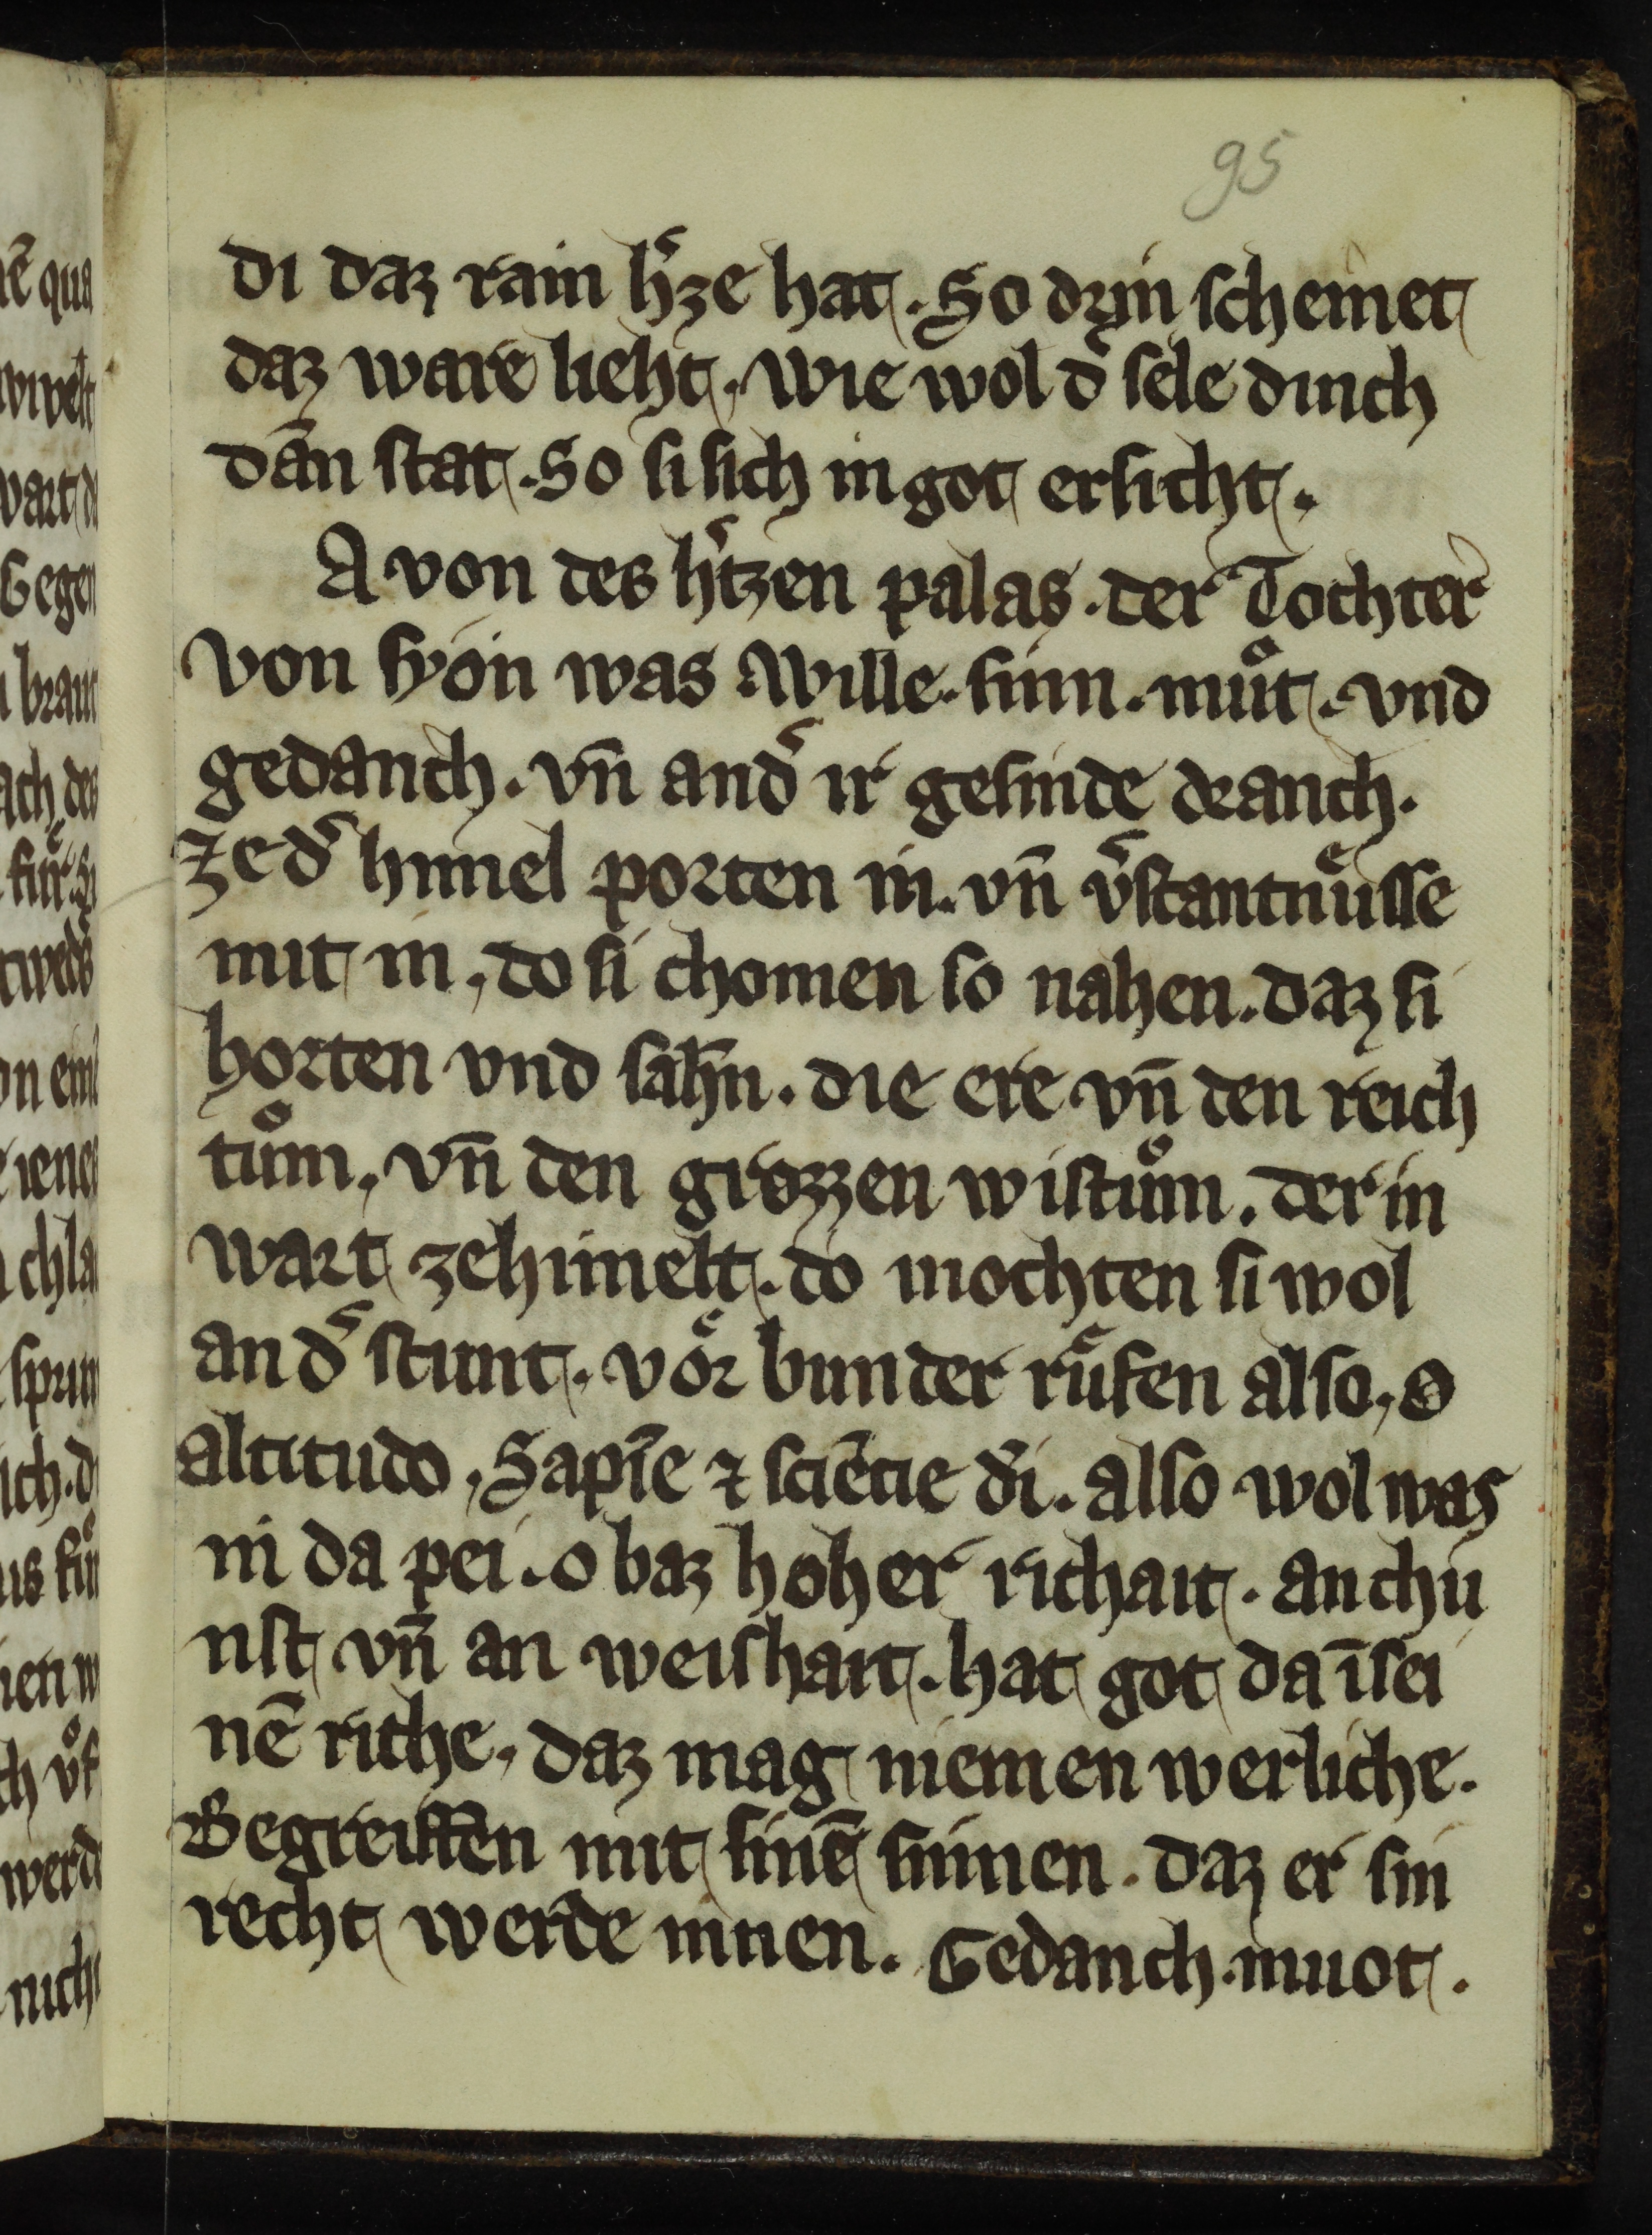 95
di daz rain h̾ze hat. So drin scheinet
daz ware lieht. wie wol d̾ sele dinch
dān stat. So si sich in got ersicht.
A von des h̾tzen palas. der Tochter
von syon was wille. sinn. muͦt. vnd
gedanch. vn̄ and̾ ir gesinde dranch.
Ze d̾ himel porten in. vn̄ v̾stantnuͤsse
mit in, do si chomen so nahen. daz si
horten vnd sāhn. die ere vn̄ den reich
tuͦm. vn̄ den grozzen wistuͦm. der in
wart zehimelt. do mochten si wol
an d̾ stunt. voͤr bunder ruͤfen also, o
altitudo, Sapīe ⁊ sciēcie d̾i. also wol was
in da pei. o baz hoher richait. an chu
nst vn̄ an weishait. hat got da īsei
nē riche. daz mag niemen werliche.
Begreiffen mit sinē sinnen. daz er sin
recht werde innen. Gedanch. muot.